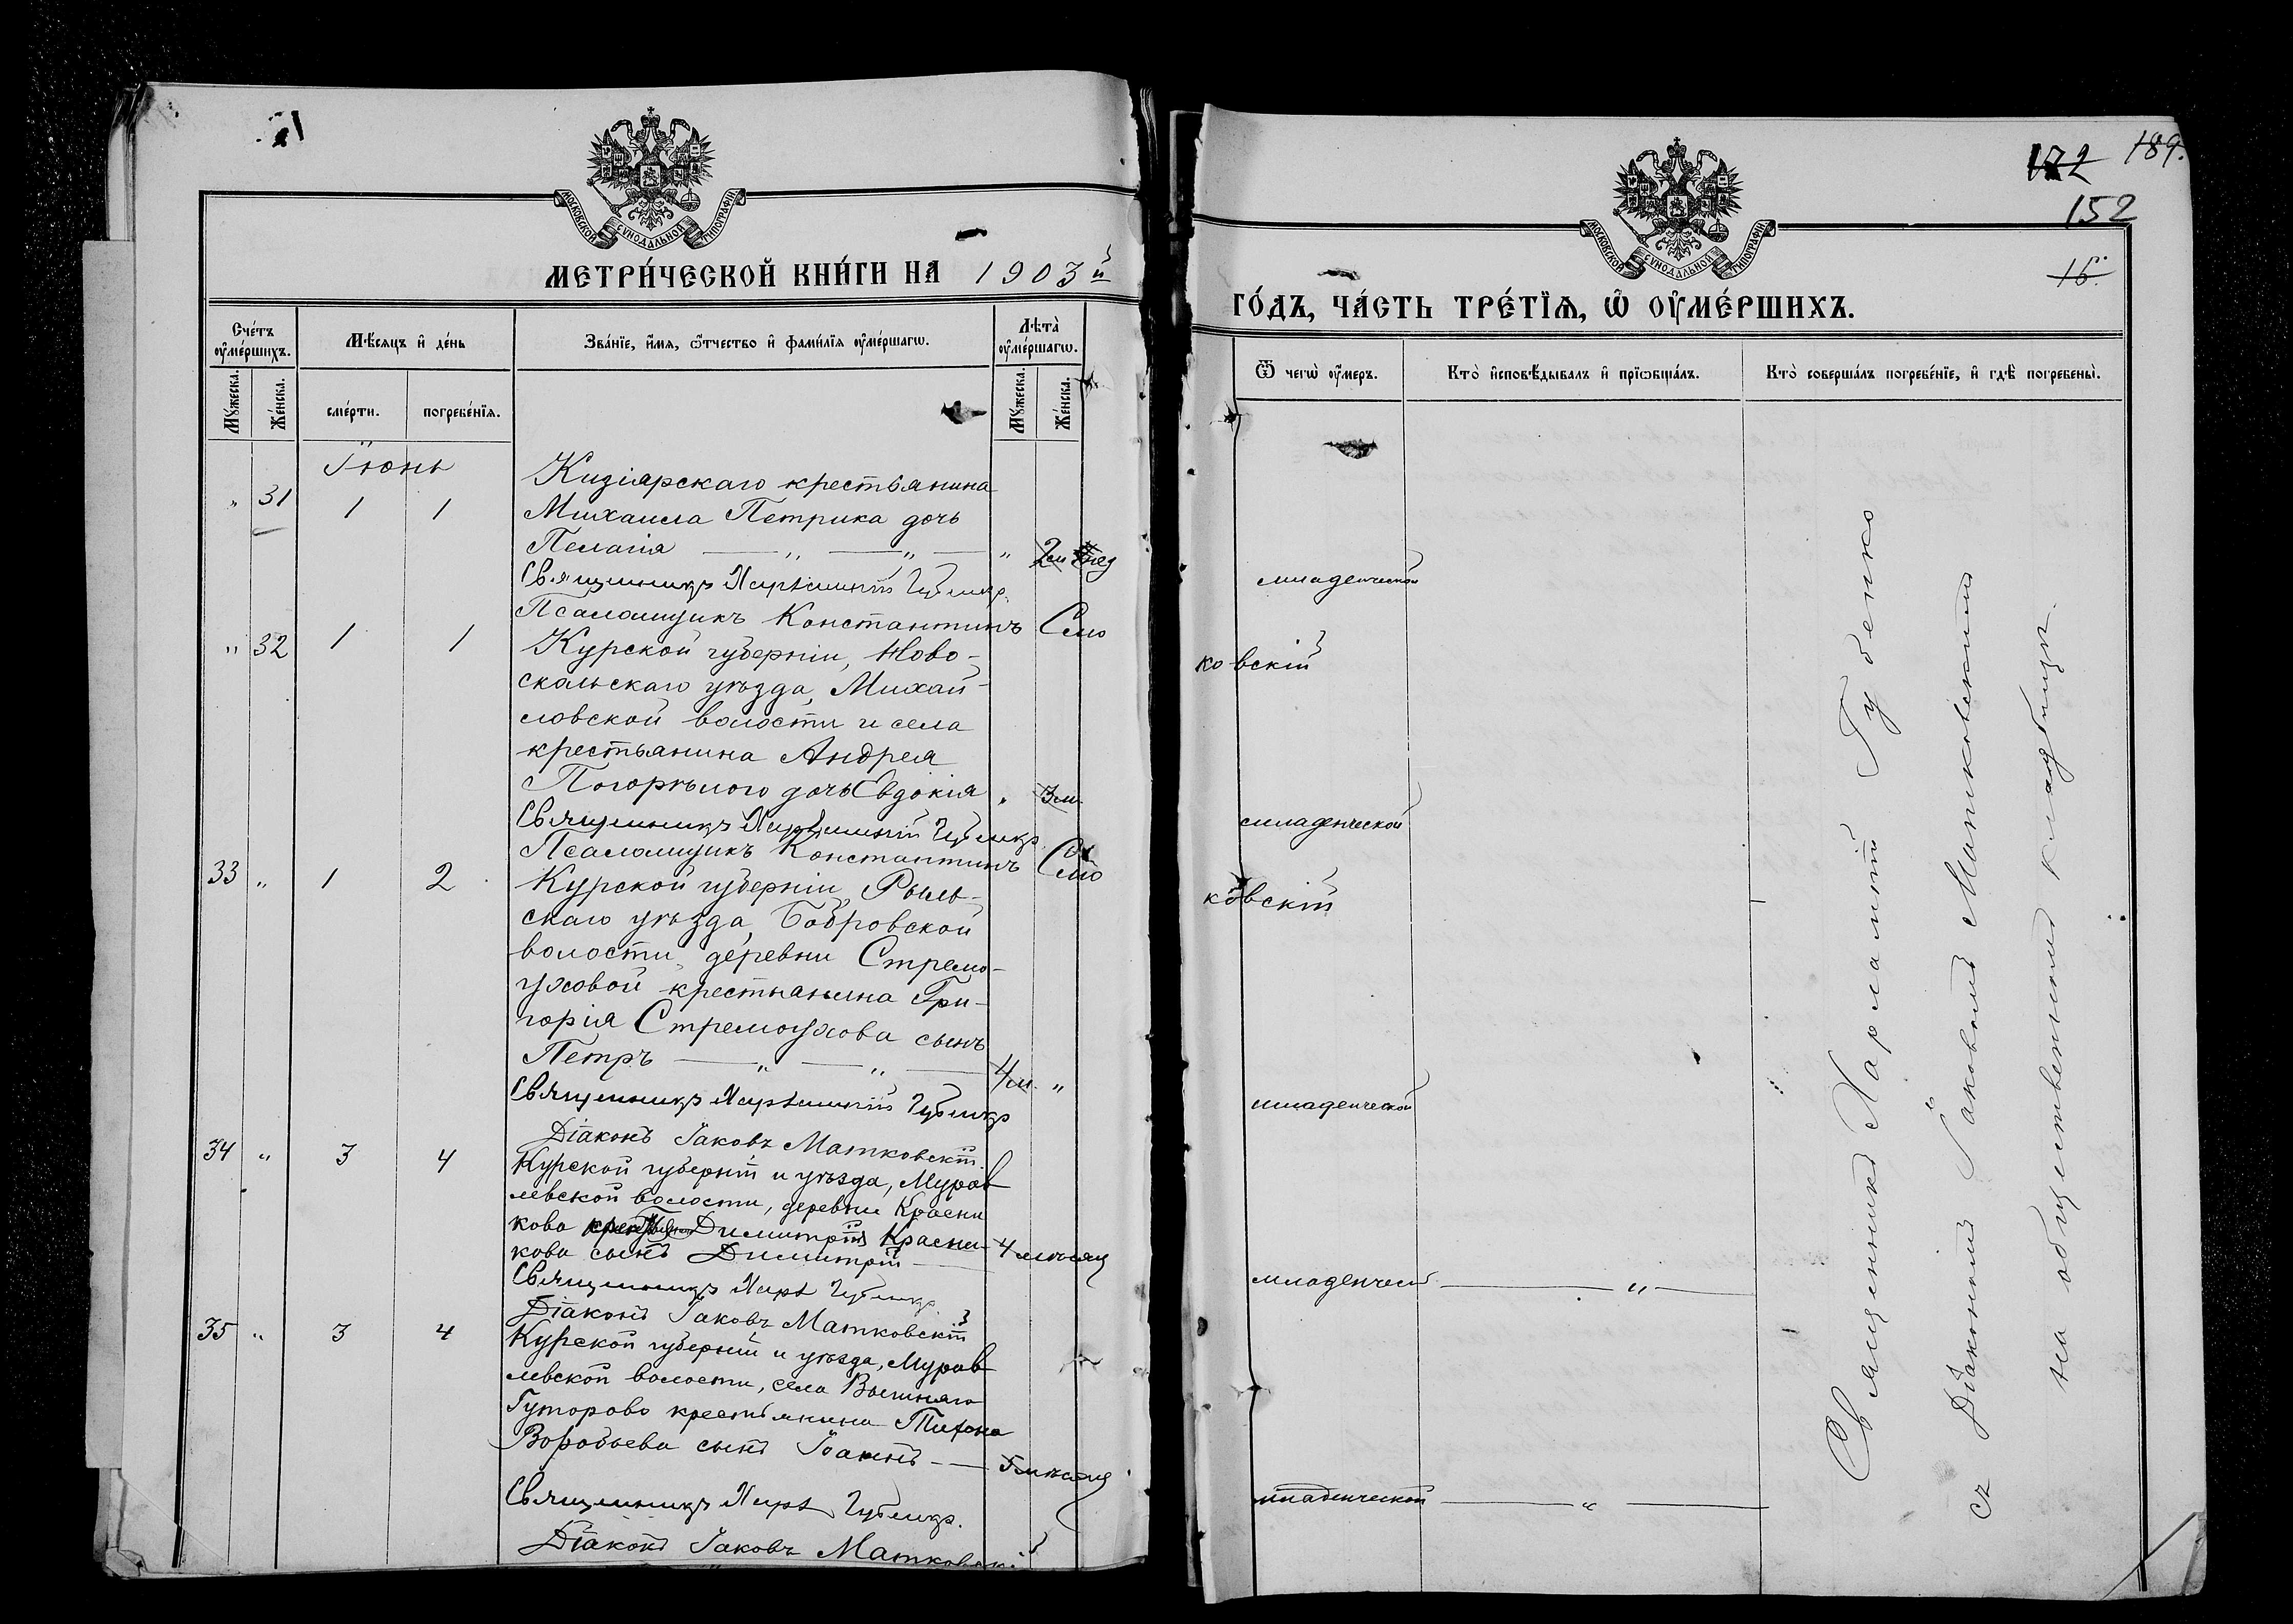 МОСКОВСКОЙ СУНОДАЛЬНОЙ ТИПОГРАФІИ
МЕТРИ́ЧЕСКОЙ КНИ́ГИ НА 1903й
Сче́тъ ᲂу҆ме́ршихъ.
Мꙋ́жеска.
Же́нска.
Мѣ́сяцъ и҆ де́нь
сме́рти.
погребе́нїѧ.
Зва́нїе, и҆́мѧ, ѻ҆́тчество и҆ фами́лїѧ ᲂу҆ме́ршагѡ.
Лѣта̀ ᲂу҆ме́ршагѡ.
Мꙋ́жеска.
Же́нска.
Іюнь
" 31 1 1 Кизіярскаго крестьянина
Михаила Петрика дочь
Пелагія — " — " — "
Священникъ Харлампій Губенко
Псаломщикъ Константинъ
" 32 1 1 Курской губерніи, Ново-
скольскаго уѣзда, Михай-
ловской волости и села
крестьянина Андрея
Погорѣлого дочь Евдокія " 3 м.
Священникъ Харлампій Губенко
Псаломщикъ Константинъ
33 " 1 2 Курской губерніи, Рыль-
скаго уѣзда, Бобровской
волости, деревни Стремо-
уховой крестьянина Гри-
горія Стремоухова сынъ
Петръ — " — " — 4 м. "
Священникъ Харлампій Губенко
Діаконъ Іаковъ Матковскій
34 " 3 4 Курской губерніи и уѣзда, Мурав
левской волости, деревни Красни
кова Димитрія Красни-
кова сынъ Димитрій — 4 мѣсяц
Священникъ Харл Губенко
Діаконъ Іаковъ Матковскій
35 " 3 4 Курской губерніи и уѣзда, Мурав
левской волости, села Вышняго
Гуторово крестьянина Тихона
Воробьева сынъ Іоаннъ — 5 мѣсяц
Священникъ Харл Губенко
Діаконъ Іаковъ Матковскій
172 189.
152
16.
МОСКОВСКОЙ СУНОДАЛЬНОЙ ТИПОГРАФІИ
ГО́ДЪ, ЧА́СТЬ ТРЕ́ТЇѦ, Ѡ҆ ОУ҆МЕ́РШИХЪ.
Ѿ чегѡ̀ ᲂу҆́меръ.
Кто̀ и҆сповѣ́дывалъ и҆ прїѡбща́лъ.
Кто̀ соверша́лъ погребе́нїе, и҆ гдѣ̀ погребены̀.
младенческой
ковскій
младенческой
ковскій
младенческой
младенческ — " —
младенческой — " —
Священникъ Харлампій Губенко
съ Діакономъ Іаковомъ Матковскимъ
на общественномъ кладбищѣ.